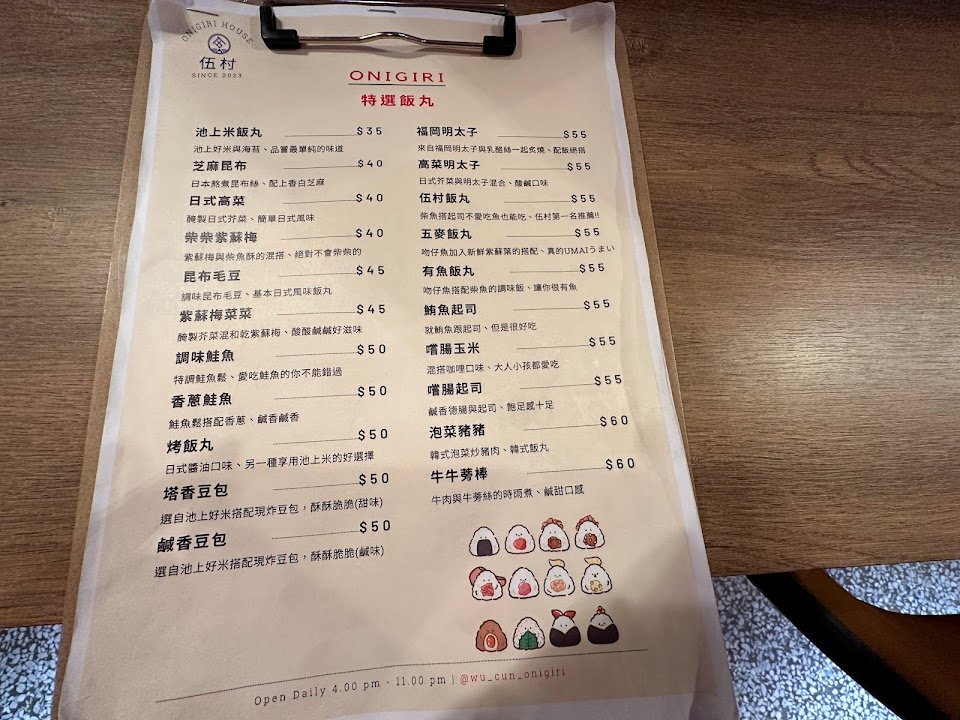 ONIGIRI HOUSE
伍村
SINCE 2023
ONIGIRI
特選飯丸
池上米飯丸 $35
池上好米與海苔、品嘗最單純的味道
芝麻昆布 $40
日本熬煮昆布絲、配上香白芝麻
日式高菜 $40
醃製日式芥菜、簡單日式風味
柴柴紫蘇梅 $40
紫蘇梅與柴魚酥的混搭、絕對不會柴柴的
昆布毛豆 $45
調味昆布毛豆、基本日式風味飯丸
紫蘇梅菜菜 $45
醃製芥菜混和乾紫蘇梅、酸酸鹹鹹好滋味
調味鮭魚 $50
特調鮭魚鬆、愛吃鮭魚的你不能錯過
香蔥鮭魚 $50
鮭魚鬆搭配香蔥、鹹香鹹香
烤飯丸 $50
日式醬油口味、另一種享用池上米的好選擇
塔香豆包 $50
選自池上好米搭配現炸豆包，酥酥脆脆(甜味)
鹹香豆包 $50
選自池上好米搭配現炸豆包，酥酥脆脆(鹹味)
福岡明太子 $55
來自福岡明太子與乳酪絲一起炙燒、配飯絕搭
高菜明太子 $55
日式芥菜與明太子混合、酸鹹口味
伍村飯丸 $55
柴魚搭起司不愛吃魚也能吃、伍村第一名推薦!!
五麥飯丸 $55
吻仔魚加入新鮮紫蘇葉的搭配、真的UMAIうまい
有魚飯丸 $55
吻仔魚搭配柴魚的調味飯、讓你很有魚
鮪魚起司 $55
就鮪魚跟起司、但是很好吃
嚐腸玉米 $55
混搭咖哩口味、大人小孩都愛吃
嚐腸起司 $55
鹹香德腸與起司、飽足感十足
泡菜豬豬 $60
韓式泡菜炒豬肉、韓式飯丸
牛牛蒡棒 $60
牛肉與牛蒡絲的時雨煮、鹹甜口感
Open Daily 4.00 pm - 11.00 pm | @wu_cun_onigiri